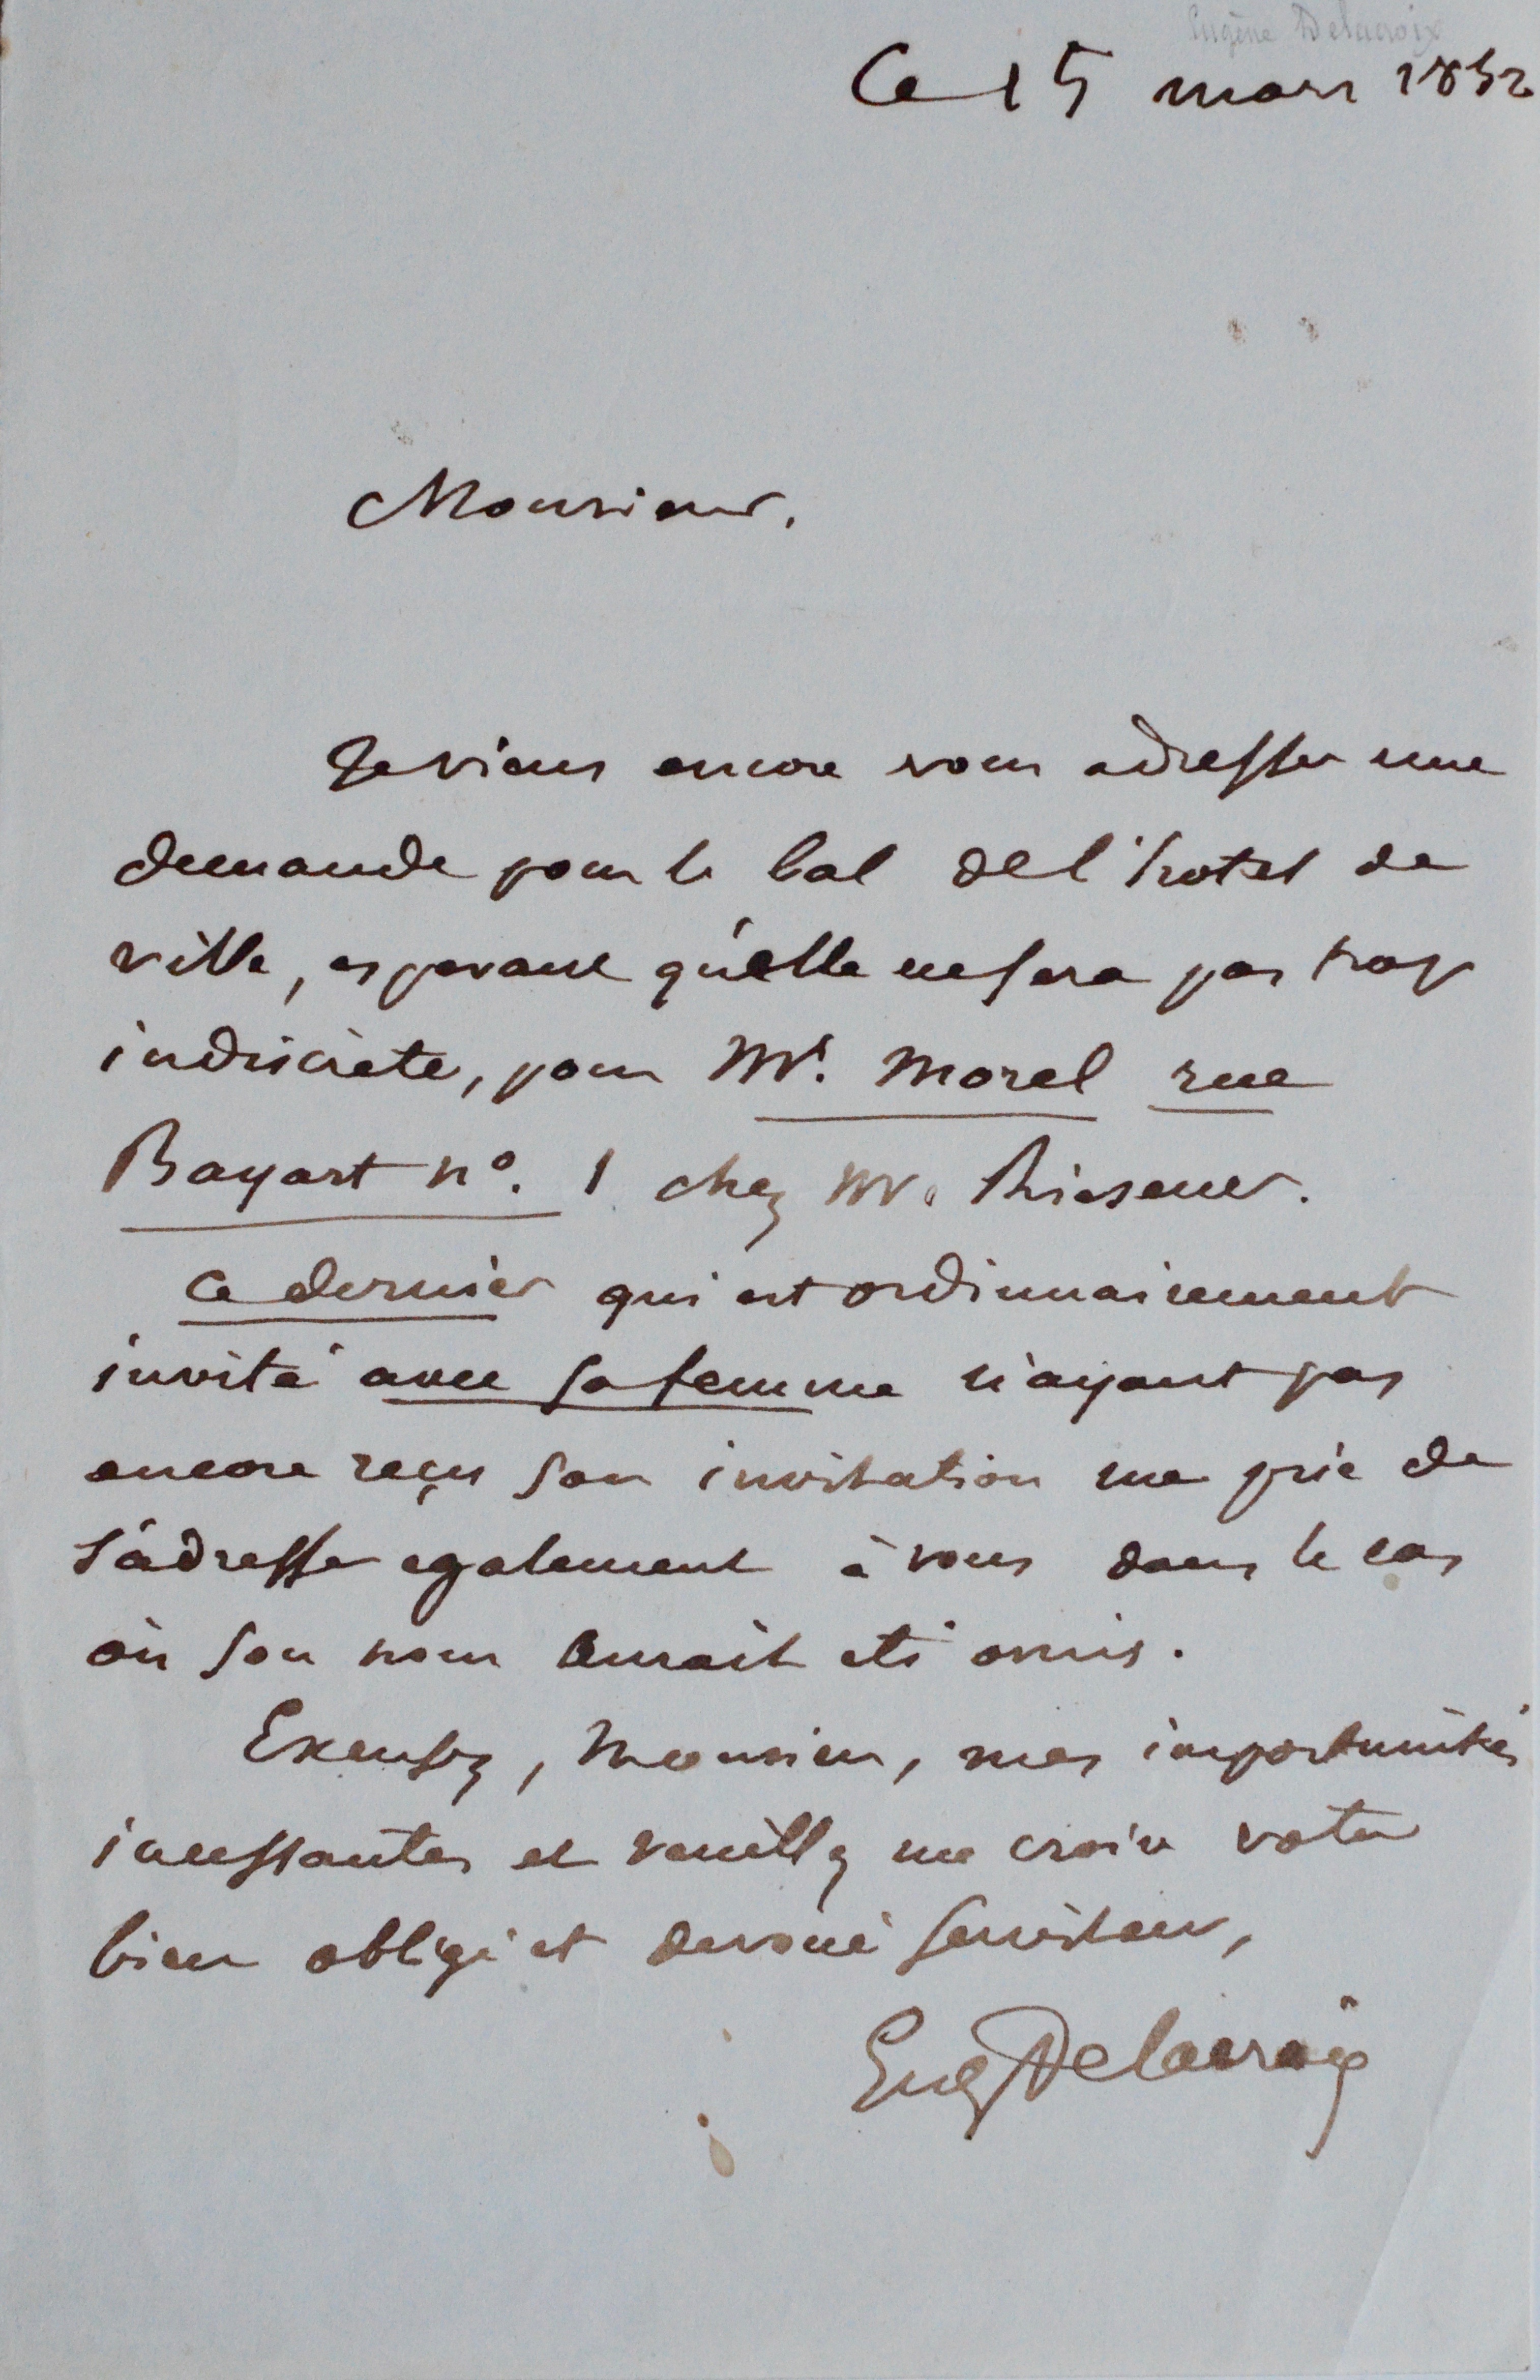 Eugène Delacroix
Ce 15 mars 1852
Monsieur.
Je viens encore vous adresser une
demande pour le bal de l'hotel de
ville, esperant qu'elle ne sera pas trop
indiscrète, pour Mr. Morel rue
Bayart no. 1 chez Mr. Riesener.
Ce dernier qui est ordinnairement
invité avec sa femme n'ayant pas
encore reçu son invitation me prie de
s'adresser egalement à vous dans le cas
où son nom aurait eté omis.
Excusez, Monsieur, mes importunités
incessantes et veuillez me croire votre
bien obligé et devoué serviteur,
Eug Delacroix